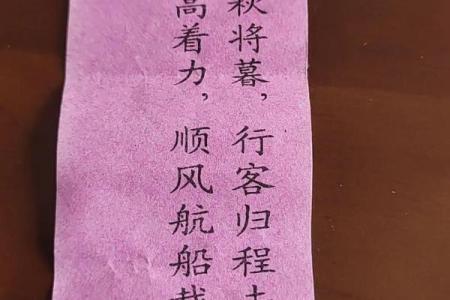 将暮，行客归程
高着力，顺风航船